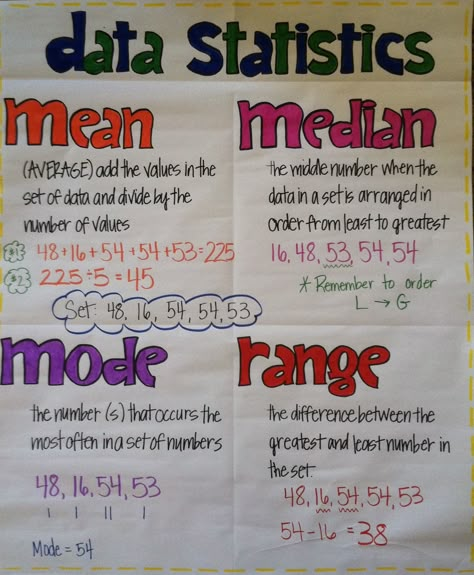 data Statistics
mean
(AVERAGE) add the values in the
set of data and divide by the
number of values
#1 48+16+54+54+53=225
#2 225÷5=45
median
the middle number when the
data in a set is arranged in
order from least to greatest
16, 48, 53, 54, 54
* Remember to order
L → G
Set: 48, 16, 54, 54, 53
mode
the number (s) that occurs the
most often in a set of numbers
48, 16, 54, 53
I I II I
Mode = 54
range
the difference between the
greatest and least number in
the set.
48, 16, 54, 54, 53
54-16 = 38